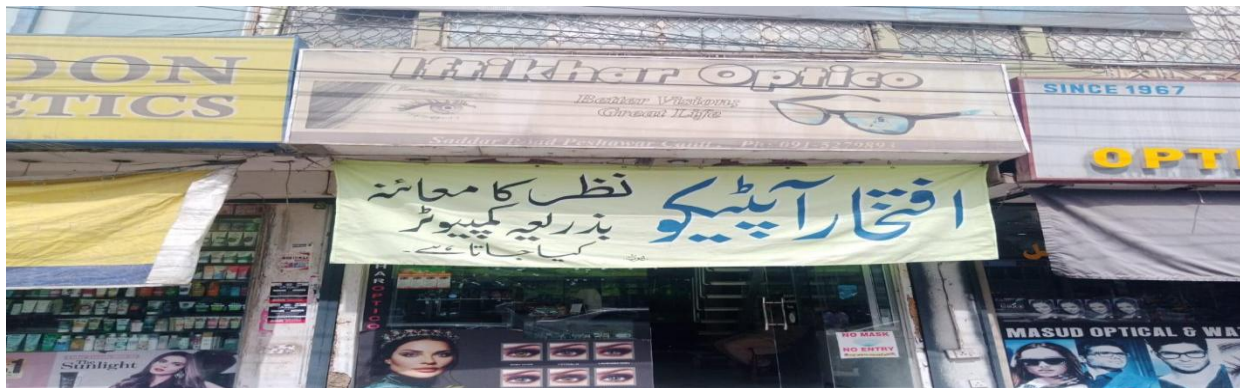 OON
ETICS
Iftikhar Optico
Better Vision;
Great Life
Saddar Road Peshawar Cantt. Ph: 091-5279894
SINCE 1967
OPTI
افتخار آپٹیکو
نظر کا معائنہ
بذریعہ کمپیوٹر
کیا جاتا ہے۔
HAR OPTICO
NO MASK
NO ENTRY
MASUD OPTICAL & WA
The
Sunlight